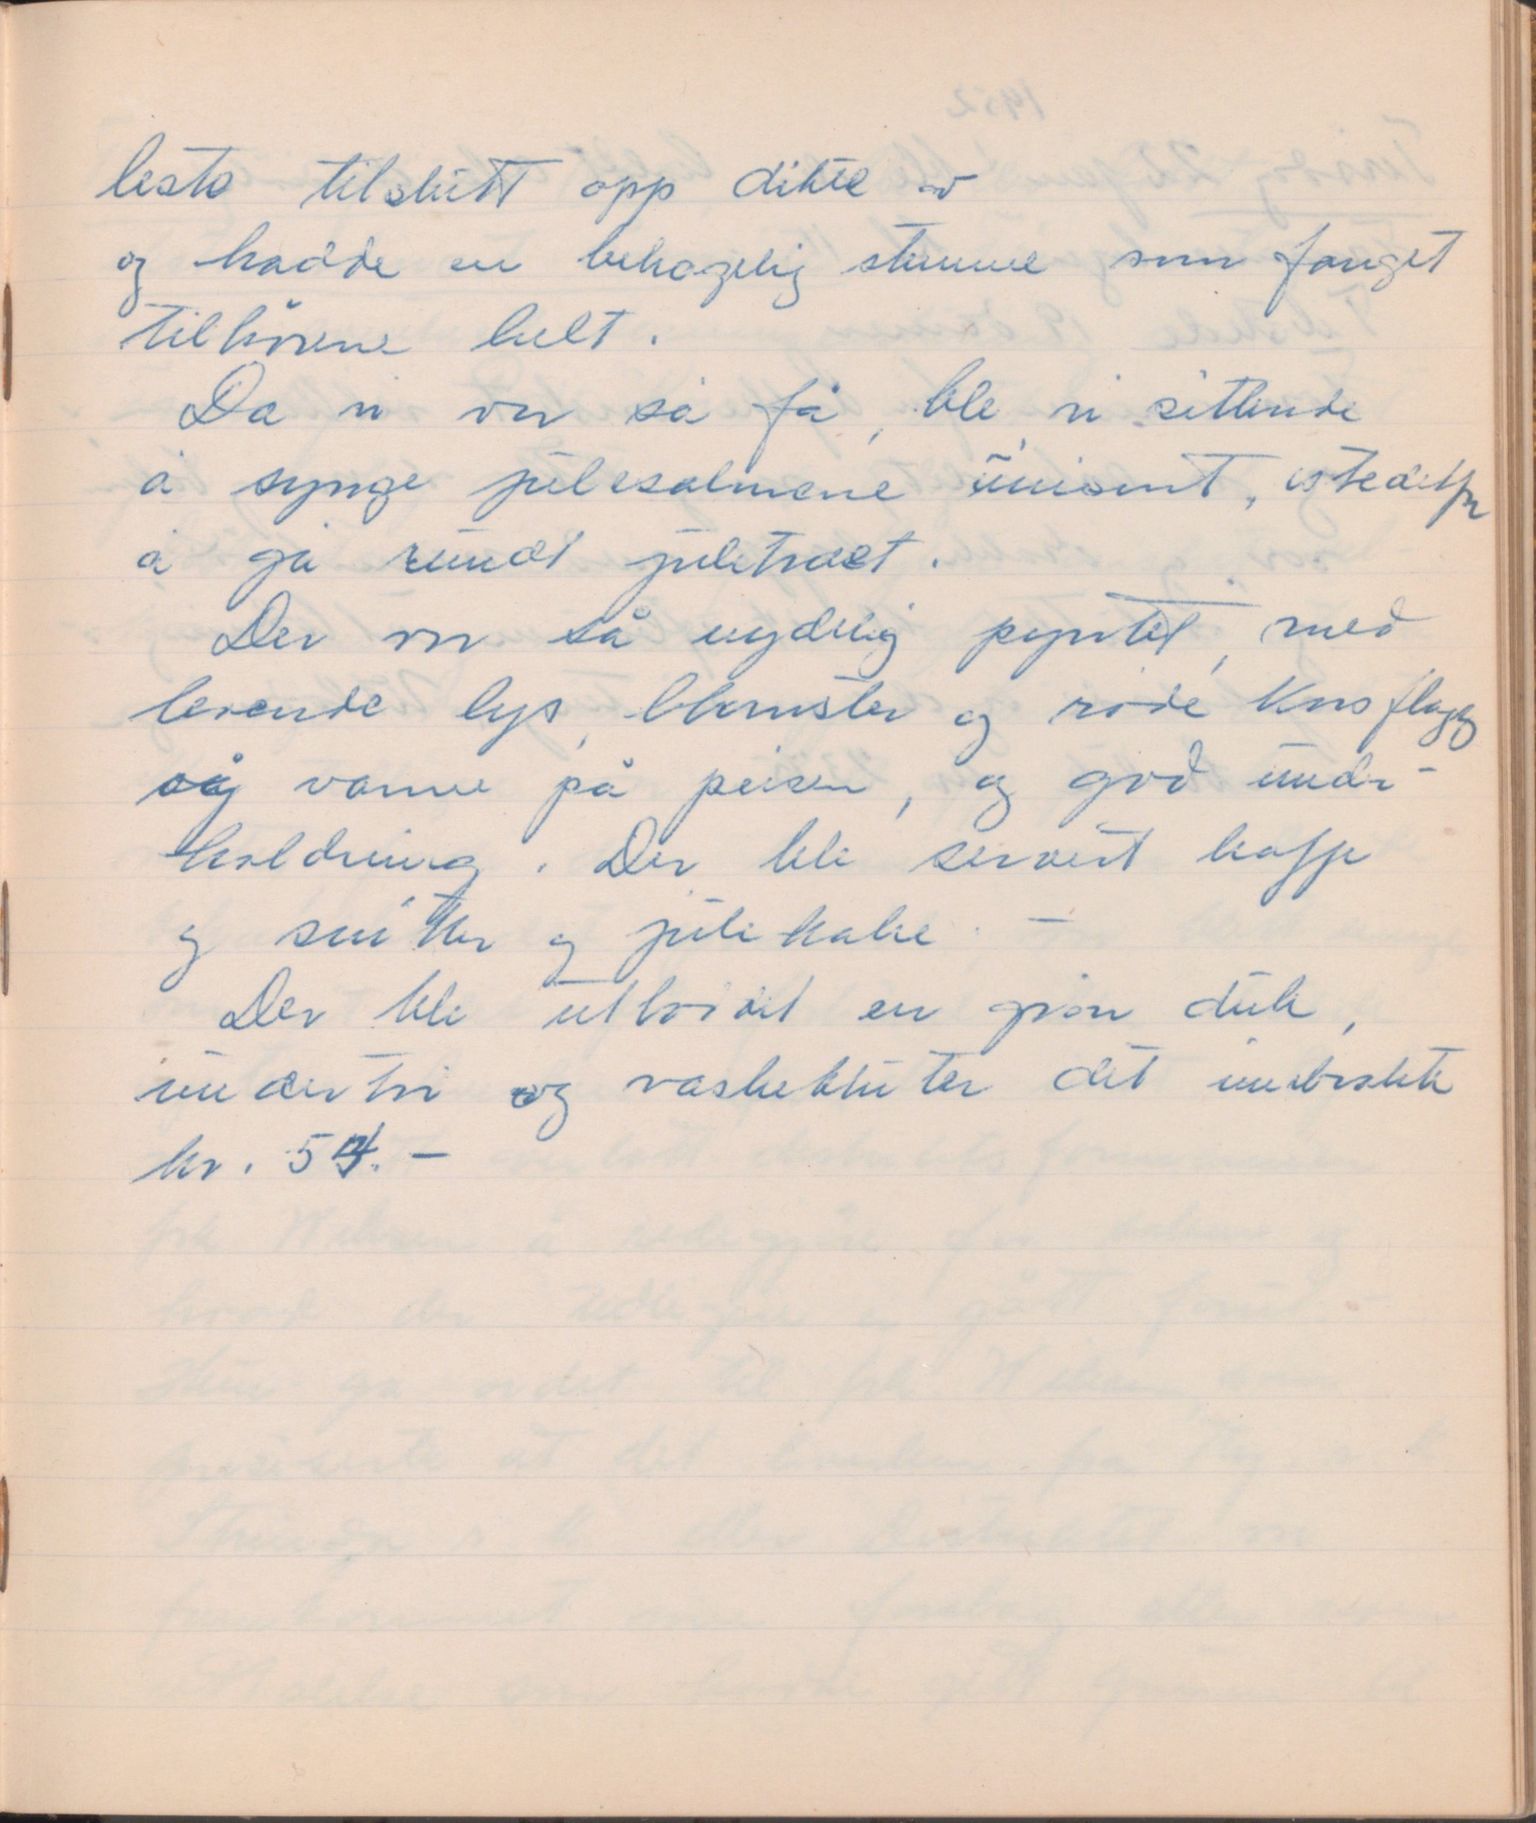 leste tilslutt opp dikte av
og hadde en behagelig stemme som fanget
tilhörene helt.
Da vi var så få, ble vi sittende
å synge julesalmene unisont, istedetfor
å gå rundt juletræet.
Der var så nydelig pyntet, med
levende lys, blomster og röde korsflagg
og varme på peisen, og god under-
holdning. Der ble servert kaffe
og snitter og julekake. –
Der ble utloddet en grön duk,
undertöi og vaskekluter det innbrakte
kr. 54. –